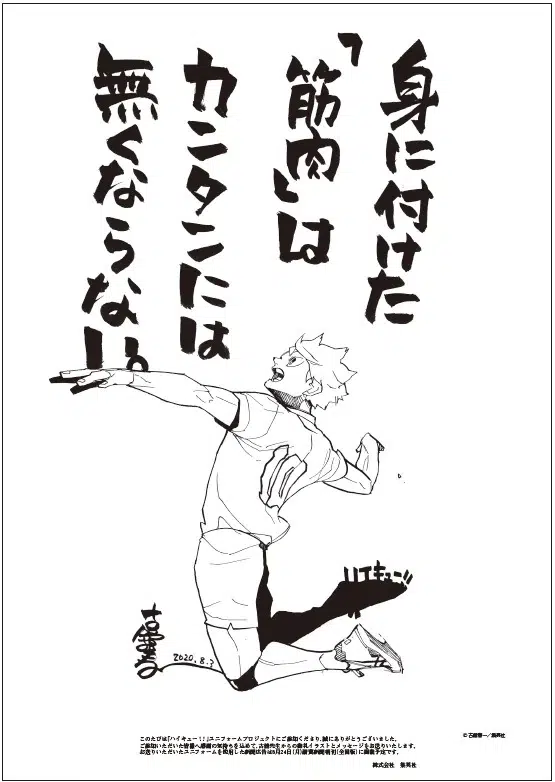 身に付けた
「筋肉」は
カンタンには
無くならない。
ハイキュー!!
古舘春一
2020.8.3
このたびは「ハイキュー!!」ユニフォームプロジェクトにご参加くださり、誠にありがとうございました。
ご参加いただいた皆様へ感謝の気持ちを込めて、古舘先生からの御礼イラストとメッセージをお送りいたします。
お送りいただいたユニフォームを使用した新聞広告は8月24日(月)読売新聞朝刊(全国版)に掲載予定です。
株式会社 集英社
©古舘春一/集英社